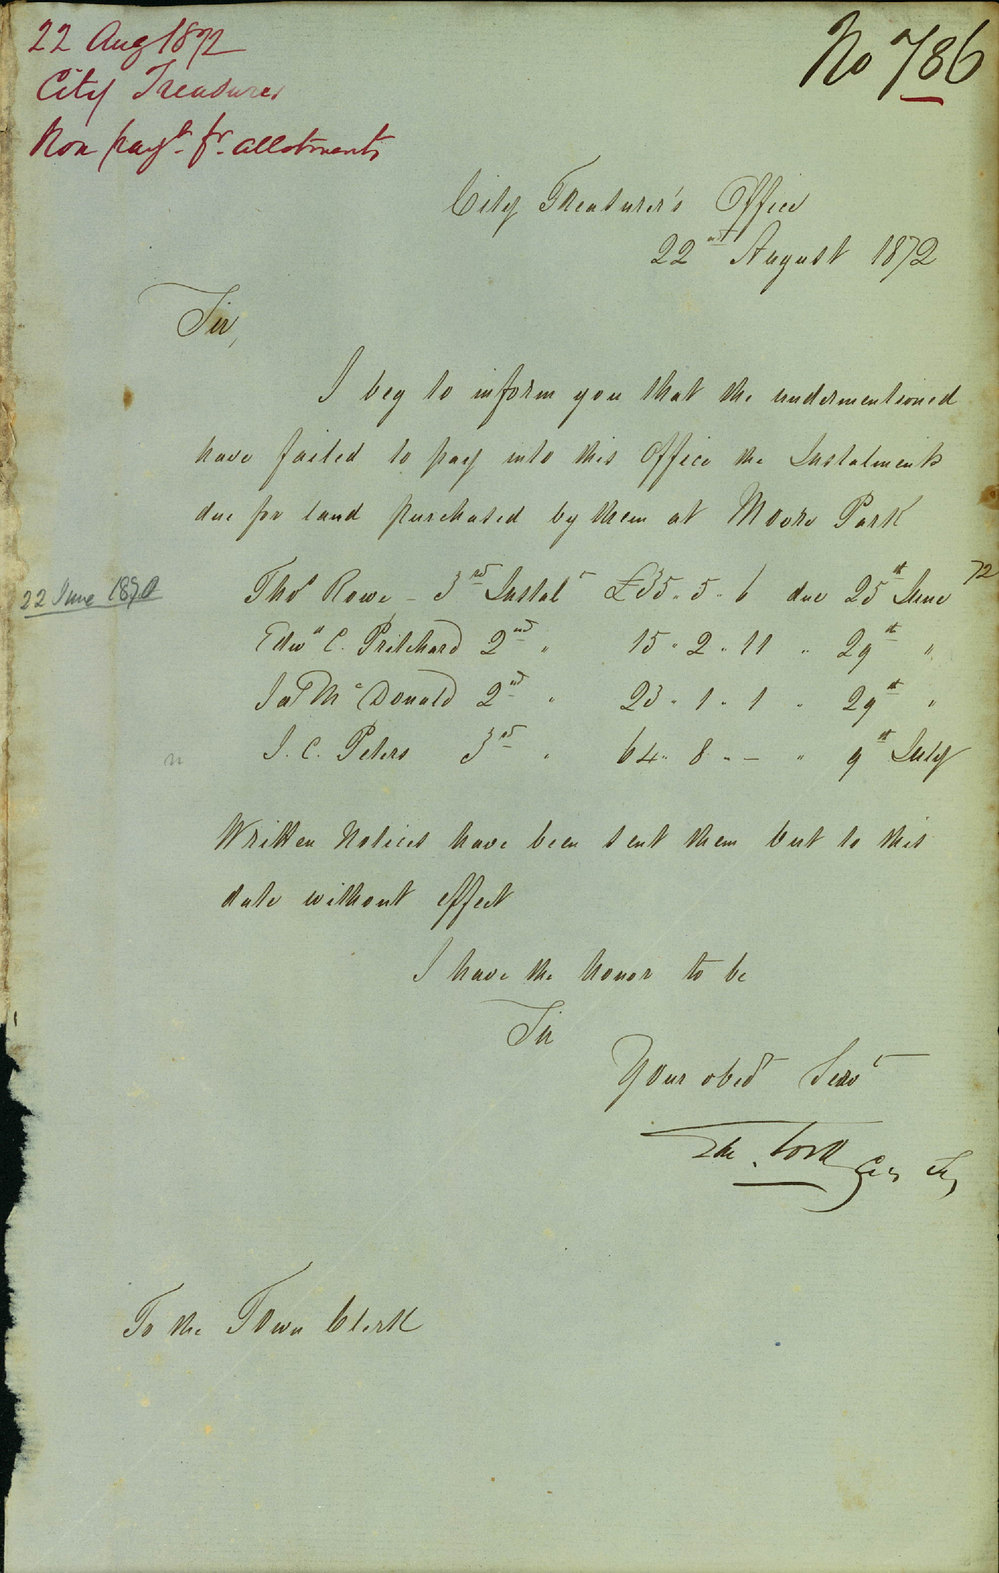 22 Aug 1872
City Treasurer
Non payt. fr. allotments
No 786
City Treasurer's Office
22nd August 1872
Sir,
I beg to inform you that the undermentioned
have failed to pay into this Office the Instalments
due for land purchased by them at Moore Park
22 June 1870
Thos Rowe - 3rd Instalt £35 " 5 " 6 due 25th June 72
Edwd C. Pritchard 2nd " 15 " 2 " 11 " 29th "
Jas McDonald 2nd " 23 " 1 " 1 " 29th "
J. C. Peters 3rd " 64 " 8 " - " 9th July
Written Notices have been sent them but to this
date without effect
I have the honor to be
Sir
Your obedt Servt
City
To the Town Clerk